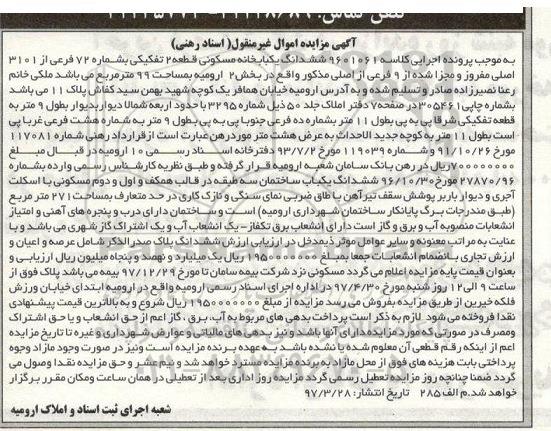 آگهی مزایده اموال غیرمنقول( اسناد رهنی)
به موجب پرونده اجرایی کلاسه ۹۶۰۱۰۶۱ ششدانگ یکبابخانه مسکونی قطعه۲ تفکیکی بشماره ۷۲ فرعی از ۳۱۰۱
اصلی مفروز و مجزا شده از ۹ فرعی از اصلی مذکور واقع در بخش۲ ارومیه بمساحت ۹۹ مترمربع می باشد ملکی خانم
رعنا نصیرزاده صادر و تسلیم شده و به آدرس ارومیه خیابان همافر یک کوچه شهید بهمن سید کفاش پلاک ۱۱ می باشد
بشماره چاپی۳۰۵۴۶۱ در صفحه۷ دفتر املاک جلد ۵۰ ذیل شماره ۳۲۹۵ با حدود اربعه شمالا دیوار بدیوار بطول ۹ متر به
قطعه تفکیکی شرقا پی به پی بطول ۱۱ متر بشماره ده فرعی جنوبا پی به پی بطول ۹ متر به شماره هشت فرعی غربا پی
است بطول ۱۱ متر به کوچه جدید الاحداث به عرض هشت متر موردرهن عبارت است از قرارداد رهنی شماره ۱۱۷۰۸۱
مورخ ۹۱/۱۰/۲۶ وشماره ۱۱۹۰۳۹ مورخ ۹۳/۷/۲ دفترخانه اسناد رسمی ۱۰ ارومیه در قبال مبلغ
۷۰۰۰۰۰۰۰۰ریال در رهن بانک سامان شعبه ارومیه قرار گرفته و طبق نظریه کارشناس رسمی وارده بشماره
۲۷۸۷۰/۹۶ مورخ۹۶/۱۰/۳۰ ششدانگ یکباب ساختمان سه طبقه در قالب همکف و اول و دوم مسکونی با اسکلت
آجری و دیوار باربر پوشش سقف تیرآهن با طاق ضربی نمای سنگی و نازک کاری در حد متعارف بمساحت ۲۷۱ متر مربع
(طبق مندرجات برگ پایانکار ساختمان شهرداری ارومیه) است و ساختمان دارای درب و پنجره های آهنی و امتیاز
انشعابات منصوبه آب و برق و گاز است دارای انشعاب برق تکفاز- یک انشعاب آب و یک اشتراک گاز شهری می باشد و با
عنایت به مراتب معنونه و سایر عوامل موثر ذیمدخل در ارزیابی ارزش ششدانگ پلاک صدرالذکر شامل عرصه و اعیان و
ارزش تجاری با انضمام انشعابات جمعا بمبلغ ۱۹۵۰۰۰۰۰۰۰ ریال یک میلیارد و نهصد و پنجاه میلیون ریال ارزیابی و
بعنوان قیمت پایه مزایده اعلام می گردد مسکونی نزد شرکت بیمه سامان تا مورخ ۹۷/۱۲/۲۹ بیمه می باشد پلاک فوق از
ساعت ۹ الی۱۲ روز شنبه مورخ ۹۷/۴/۳۰ در اداره اجرای اسناد رسمی ارومیه واقع در ارومیه ابتدای خیابان ورزش
فلکه خیرین از طریق مزایده بفروش می رسد مزایده از مبلغ ۱۹۵۰۰۰۰۰۰۰ ریال شروع و به بالاترین قیمت پیشنهادی
نقدا فروخته می شود. لازم به ذکر است پرداخت بدهی های مربوط به آب، برق، گاز اعم از حق انشعاب و یا حق اشتراک
ومصرف در صورتی که مورد مزایده دارای آنها باشد و نیز بدهی های مالیاتی و عوارض شهرداری و غیره تا تاریخ مزایده
اعم از اینکه رقم قطعی آن معلوم شده یا نشده باشد به عهده برنده مزایده است و نیز در صورت وجود مازاد وجوه
پرداختی بابت هزینه های فوق از محل مازاد به برنده مزایده مسترد خواهد شد و نیم عشر و حق مزایده نقدا وصول می
گردد ضمنا چنانچه روز مزایده تعطیل رسمی گردد مزایده روز اداری بعد از تعطیلی در همان ساعت ومکان مقرر برگزار
خواهد شد.م الف ۲۸۵ تاریخ انتشار: ۹۷/۳/۲۸
شعبه اجرای ثبت اسناد و املاک ارومیه